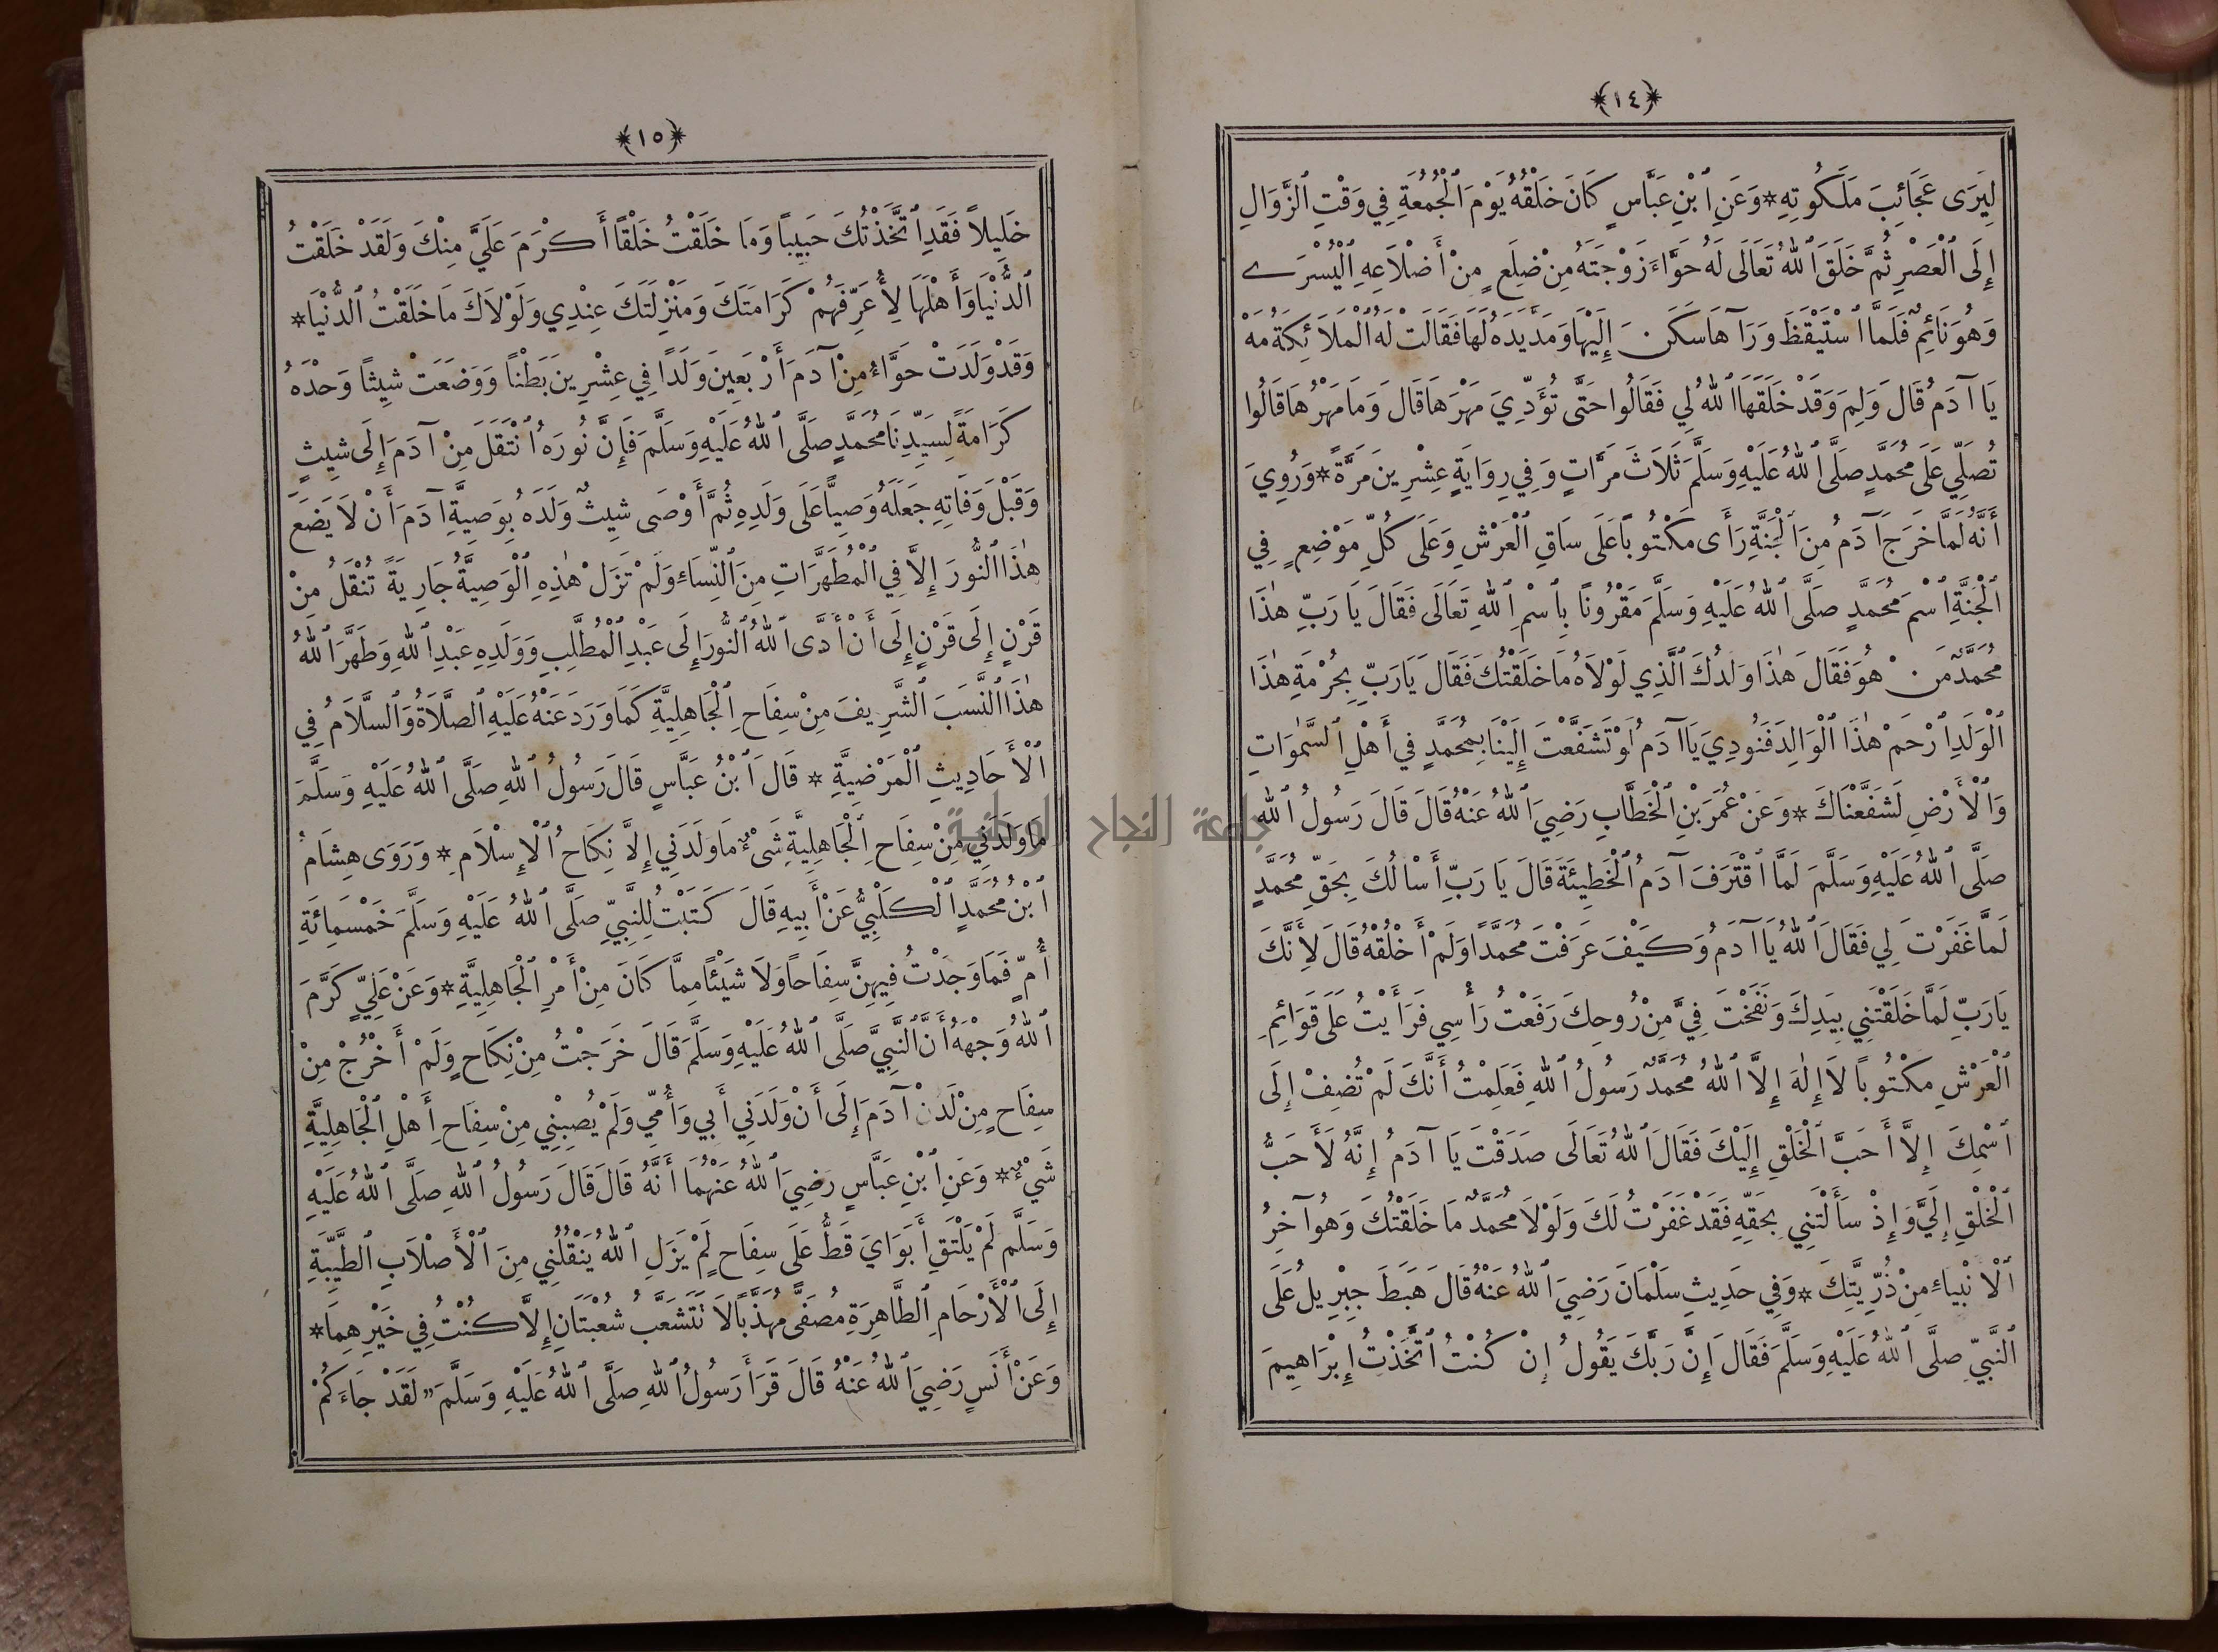 ﴿١٤﴾
لِيَرَى عَجَائِبَ مَلَكُوتِهِ * وَعَنِ ٱبْنِ عَبَّاسٍ كَانَ خَلْقُهُ يَوْمَ ٱلْجُمُعَةِ فِي وَقْتِ ٱلزَّوَالِ
إِلَى ٱلْعَصْرِ ثُمَّ خَلَقَ ٱللهُ تَعَالَى لَهُ حَوَّاءَ زَوْجَتَهُ مِنْ ضِلَعٍ مِنْ أَضْلَاعِهِ ٱلْيُسْرَى
وَهُوَ نَائِمٌ فَلَمَّا ٱسْتَيْقَظَ وَرَآهَا سَكَنَ إِلَيْهَا وَمَدَّ يَدَهُ لَهَا فَقَالَتْ لَهُ ٱلْمَلَائِكَةُ مَهْ
يَا آدَمُ قَالَ وَلِمَ وَقَدْ خَلَقَهَا ٱللهُ لِي فَقَالُوا حَتَّى تُؤَدِّيَ مَهْرَهَا قَالَ وَمَا مَهْرُهَا قَالُوا
تُصَلِّي عَلَى مُحَمَّدٍ صَلَّى ٱللهُ عَلَيْهِ وَسَلَّمَ ثَلَاثَ مَرَّاتٍ وَفِي رِوَايَةٍ عِشْرِينَ مَرَّةً * وَرُوِيَ
أَنَّهُ لَمَّا خَرَجَ آدَمُ مِنَ ٱلْجَنَّةِ رَأَى مَكْتُوبًا عَلَى سَاقِ ٱلْعَرْشِ وَعَلَى كُلِّ مَوْضِعٍ فِي
ٱلْجَنَّةِ ٱسْمَ مُحَمَّدٍ صَلَّى ٱللهُ عَلَيْهِ وَسَلَّمَ مَقْرُونًا بِٱسْمِ ٱللهِ تَعَالَى فَقَالَ يَا رَبِّ هٰذَا
مُحَمَّدٌ مَنْ هُوَ فَقَالَ هٰذَا وَلَدُكَ ٱلَّذِي لَوْلَاهُ مَا خَلَقْتُكَ فَقَالَ يَا رَبِّ بِحُرْمَةِ هٰذَا
ٱلْوَلَدِ ٱرْحَمْ هٰذَا ٱلْوَالِدَ فَنُودِيَ يَا آدَمُ لَوْ تَشَفَّعْتَ إِلَيْنَا بِمُحَمَّدٍ فِي أَهْلِ ٱلسَّمٰوَاتِ
وَٱلْأَرْضِ لَشَفَّعْنَاكَ * وَعَنْ عُمَرَ بْنِ ٱلْخَطَّابِ رَضِيَ ٱللهُ عَنْهُ قَالَ قَالَ رَسُولُ ٱللهِ
صَلَّى ٱللهُ عَلَيْهِ وَسَلَّمَ لَمَّا ٱقْتَرَفَ آدَمُ ٱلْخَطِيئَةَ قَالَ يَا رَبِّ أَسْأَلُكَ بِحَقِّ مُحَمَّدٍ
لَمَّا غَفَرْتَ لِي فَقَالَ ٱللهُ يَا آدَمُ وَكَيْفَ عَرَفْتَ مُحَمَّدًا وَلَمْ أَخْلُقْهُ قَالَ لِأَنَّكَ
يَا رَبِّ لَمَّا خَلَقْتَنِي بِيَدِكَ وَنَفَخْتَ فِيَّ مِنْ رُوحِكَ رَفَعْتُ رَأْسِي فَرَأَيْتُ عَلَى قَوَائِمِ
ٱلْعَرْشِ مَكْتُوبًا لَا إِلٰهَ إِلَّا ٱللهُ مُحَمَّدٌ رَسُولُ ٱللهِ فَعَلِمْتُ أَنَّكَ لَمْ تُضِفْ إِلَى
ٱسْمِكَ إِلَّا أَحَبَّ ٱلْخَلْقِ إِلَيْكَ فَقَالَ ٱللهُ تَعَالَى صَدَقْتَ يَا آدَمُ إِنَّهُ لَأَحَبُّ
ٱلْخَلْقِ إِلَيَّ وَإِذْ سَأَلْتَنِي بِحَقِّهِ فَقَدْ غَفَرْتُ لَكَ وَلَوْلَا مُحَمَّدٌ مَا خَلَقْتُكَ وَهُوَ آخِرُ
ٱلْأَنْبِيَاءِ مِنْ ذُرِّيَّتِكَ * وَفِي حَدِيثِ سَلْمَانَ رَضِيَ ٱللهُ عَنْهُ قَالَ هَبَطَ جِبْرِيلُ عَلَى
ٱلنَّبِيِّ صَلَّى ٱللهُ عَلَيْهِ وَسَلَّمَ فَقَالَ إِنَّ رَبَّكَ يَقُولُ إِنْ كُنْتُ ٱتَّخَذْتُ إِبْرَاهِيمَ
﴿١٥﴾
خَلِيلًا فَقَدِ ٱتَّخَذْتُكَ حَبِيبًا وَمَا خَلَقْتُ خَلْقًا أَكْرَمَ عَلَيَّ مِنْكَ وَلَقَدْ خَلَقْتُ
ٱلدُّنْيَا وَأَهْلَهَا لِأُعَرِّفَهُمْ كَرَامَتَكَ وَمَنْزِلَتَكَ عِنْدِي وَلَوْلَاكَ مَا خَلَقْتُ ٱلدُّنْيَا *
وَقَدْ وَلَدَتْ حَوَّاءُ مِنْ آدَمَ أَرْبَعِينَ وَلَدًا فِي عِشْرِينَ بَطْنًا وَوَضَعَتْ شِيثًا وَحْدَهُ
كَرَامَةً لِسَيِّدِنَا مُحَمَّدٍ صَلَّى ٱللهُ عَلَيْهِ وَسَلَّمَ فَإِنَّ نُورَهُ ٱنْتَقَلَ مِنْ آدَمَ إِلَى شِيثٍ
وَقَبْلَ وَفَاتِهِ جَعَلَهُ وَصِيًّا عَلَى وَلَدِهِ ثُمَّ أَوْصَى شِيثٌ وَلَدَهُ بِوَصِيَّةِ آدَمَ أَنْ لَا يَضَعَ
هٰذَا ٱلنُّورَ إِلَّا فِي ٱلْمُطَهَّرَاتِ مِنَ ٱلنِّسَاءِ وَلَمْ تَزَلْ هٰذِهِ ٱلْوَصِيَّةُ جَارِيَةً تُنْقَلُ مِنْ
قَرْنٍ إِلَى قَرْنٍ إِلَى أَنْ أَدَّى ٱللهُ ٱلنُّورَ إِلَى عَبْدِ ٱلْمُطَّلِبِ وَوَلَدِهِ عَبْدِ ٱللهِ وَطَهَّرَ ٱللهُ
هٰذَا ٱلنَّسَبَ ٱلشَّرِيفَ مِنْ سِفَاحِ ٱلْجَاهِلِيَّةِ كَمَا وَرَدَ عَنْهُ عَلَيْهِ ٱلصَّلَاةُ وَٱلسَّلَامُ فِي
ٱلْأَحَادِيثِ ٱلْمَرْضِيَّةِ * قَالَ ٱبْنُ عَبَّاسٍ قَالَ رَسُولُ ٱللهِ صَلَّى ٱللهُ عَلَيْهِ وَسَلَّمَ
مَا وَلَدَنِي مِنْ سِفَاحِ ٱلْجَاهِلِيَّةِ شَيْءٌ مَا وَلَدَنِي إِلَّا نِكَاحُ ٱلْإِسْلَامِ * وَرَوَى هِشَامُ
ٱبْنُ مُحَمَّدٍ ٱلْكَلْبِيُّ عَنْ أَبِيهِ قَالَ كَتَبْتُ لِلنَّبِيِّ صَلَّى ٱللهُ عَلَيْهِ وَسَلَّمَ خَمْسَمِائَةِ
أُمٍّ فَمَا وَجَدْتُ فِيهِنَّ سِفَاحًا وَلَا شَيْئًا مِمَّا كَانَ مِنْ أَمْرِ ٱلْجَاهِلِيَّةِ * وَعَنْ عَلِيٍّ كَرَّمَ
ٱللهُ وَجْهَهُ أَنَّ ٱلنَّبِيَّ صَلَّى ٱللهُ عَلَيْهِ وَسَلَّمَ قَالَ خَرَجْتُ مِنْ نِكَاحٍ وَلَمْ أَخْرُجْ مِنْ
سِفَاحٍ مِنْ لَدُنْ آدَمَ إِلَى أَنْ وَلَدَنِي أَبِي وَأُمِّي وَلَمْ يُصِبْنِي مِنْ سِفَاحِ أَهْلِ ٱلْجَاهِلِيَّةِ
شَيْءٌ * وَعَنِ ٱبْنِ عَبَّاسٍ رَضِيَ ٱللهُ عَنْهُمَا أَنَّهُ قَالَ قَالَ رَسُولُ ٱللهِ صَلَّى ٱللهُ عَلَيْهِ
وَسَلَّمَ لَمْ يَلْتَقِ أَبَوَايَ قَطُّ عَلَى سِفَاحٍ لَمْ يَزَلِ ٱللهُ يَنْقُلُنِي مِنَ ٱلْأَصْلَابِ ٱلطَّيِّبَةِ
إِلَى ٱلْأَرْحَامِ ٱلطَّاهِرَةِ مُصَفًّى مُهَذَّبًا لَا تَتَشَعَّبُ شُعْبَتَانِ إِلَّا كُنْتُ فِي خَيْرِهِمَا *
وَعَنْ أَنَسٍ رَضِيَ ٱللهُ عَنْهُ قَالَ قَرَأَ رَسُولُ ٱللهِ صَلَّى ٱللهُ عَلَيْهِ وَسَلَّمَ ”لَقَدْ جَاءَكُمْ
جامعة النجاح الوطنية